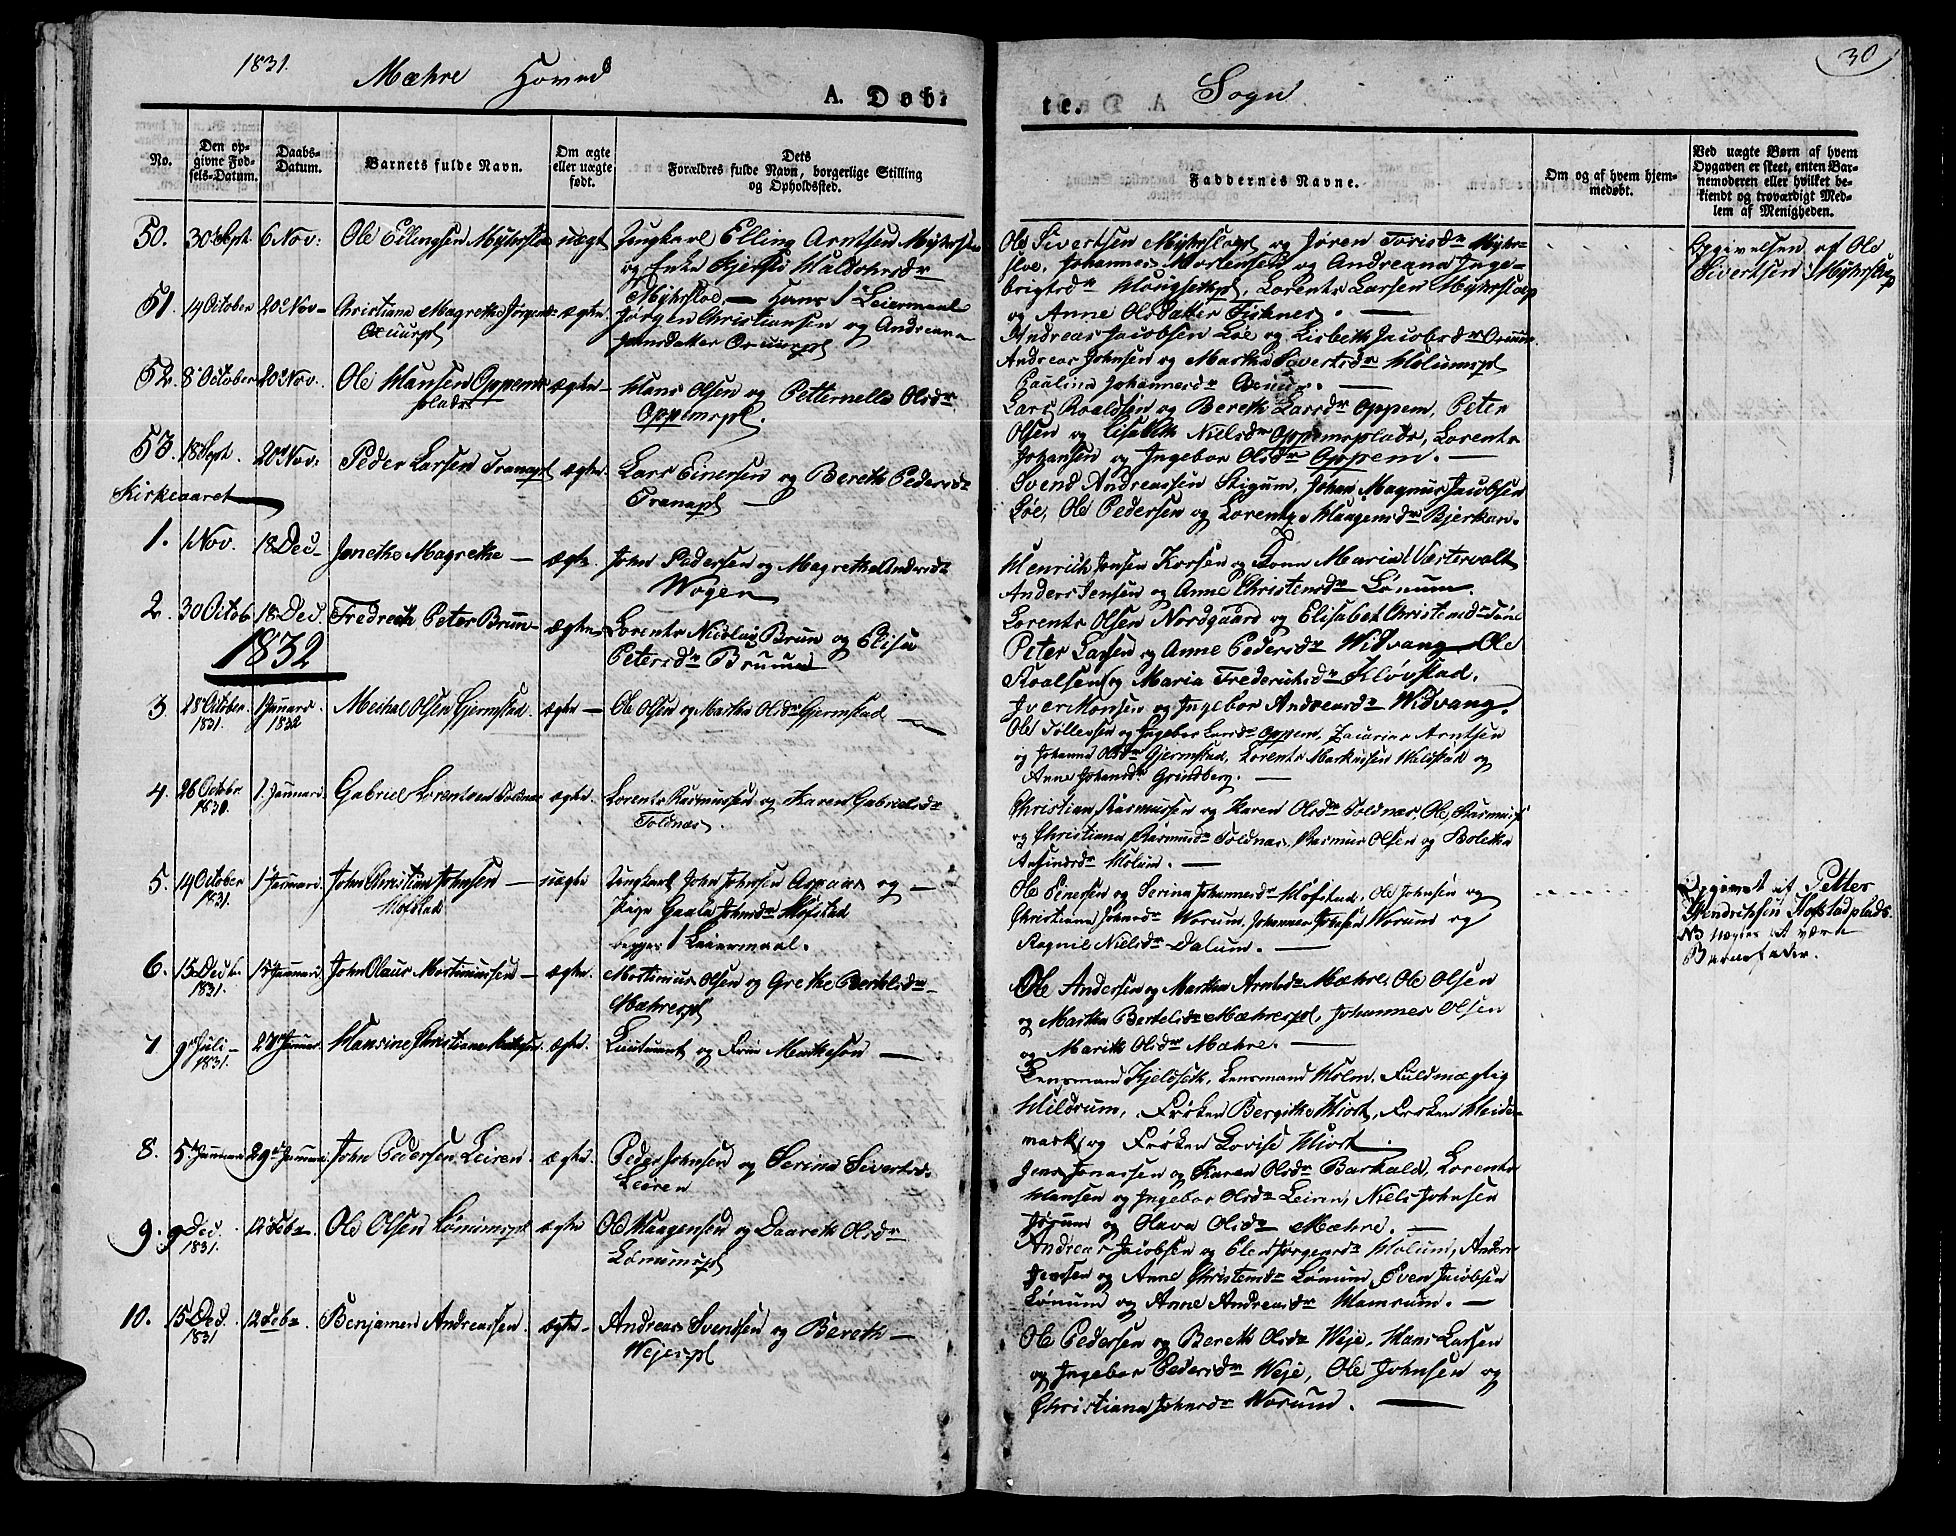 1831. Mæhre Hoved Sogn 30
A. Døbte.
No.
Den opgivne Fødsels-Datum.
Daabs-Datum.
Barnets fulde Navn.
Om ægte eller uægte født.
Dets Forældres fulde Navn, borgerlige Stilling og Opholdssted.
Faddernes Navne.
Om og af hvem hjemmedøbt.
Ved uægte Børn af hvem Opgaven er skeet, enten Barnemoderen eller hvilket bekiendt og troværdigt Medlem af Menigheden.
50. 30 Sept. 6 Nov: Ole Ellingsen Myhrsloe uægt Ungkarl Elling Arntsen Myhrsloe
og Enke
Myhrsloe, — Hans 1ste Leiermaal
Ole Sivertsen Myhrsloepl og Jøren Torisdr Myhrsloe,
Johannes Mortensen og Andreana Ingebrigtsdr
Hougsetpl, Lorents Larsen Myhrsloepl
og Anne Olsdatter Fishnes. —
Opgivelsen af Ole
Sivertsen Myhrsloep
51. 14 October 20 Nov– Christiana Magrethe Jørgensd ægte. Jørgen Christiansen og Andreana
Jensdatter
Andreas Jacobsen Løe og Lisbeth Jacobsdr
Andreas Johnsen og Martha Sivertsdr Holumspl
Paalina Johannesdr
52. 8 October 20 Nov. Ole Hansen Oppems
plads ægte– Hans Olsen og Petternelle Olsdr
Oppemspl.
Lars Roaldsen og Bereth Larsdr Oppem, Peter
Olsen og Lisabeth Nielsdr Oppemsplads, Lorents
Johansen og Ingebor Olsdr Oppem. —
53. 18 Sept. 20 Nov: Peder Larsen Tranapl ægte. Lars Einersen og Bereth Pedersdr
Tranapl —
Svend Andreassen Stigum, Johan Magnus Jacobsen
Løe, Ole Pedersen og Lorentze Haagensdr Bjerkan.
Kirkeaaret
1. 1 Nov. 18 Dec– Janethe Magrethe — ægte. John Pedersen og Magrethe Andersdr
Wogen
Henrich Jonsen Korsen og Maria Westervolt
Anders Jensen og Anne Christensdr Lønum.
2. 30 Octob 18 Dec. Fredrech Peter Brun– ægte Lorents Nicolay Brun og Elisa
Petersdr Bruun
Lorents Olsen Nordgaard og Elisabet Christensdr
Peter Larsen og Anne Pedersdr Widvang Ole
Roalsen og Maria Frederichsdr Kløvstad.
Iver Monsen og Ingebor Andreasdr Widvang.
1832
3. 28 October 1831. 1 Januars 1832 Michal Olsen Gjermstad ægte — Ole Olsen og Martha Olsdr Gjermstad —
Ole Tollefsen og Ingebor Larsdr Oppem, Zacarias Arntsen
og Johanna Olsdr Gjermstad, Lorents Markussen Wildstad og
Anne Johansdr Grindberg. —
4. 26 Octobr 1830. 1. Januari. Gabriel Lorentsen Toldnæs ægte. Lorents Rasmussen og Karen Gabrielsdr
Toldnæs.
Christian Rasmussen og Karen Olsdr Toldnæs, Ole Rasmuss
og Christiana Rasmusdr Toldnæs, Rasmus Olsen og Boletha
Anfinsdr Holum. —
5. 14 October 1831. 1 Januari. John Christian Johnsen —
Hofstad uægte Ungkarl John Johnsen Aspaas og —
Pige Gaala Johnsdr Hofstad
begges 1 Leiermaal.
Ole Einersen og Serina Johannesdr Hofstad, Ole Johnsen og
Christiana Johnsdr Worum, Johannes Johnsen Worum og
Ragnil Nielsdr Dalum. —
Opgivet af Petter
Hendrichsen Hofstadplads.
NB nægter at være
Barnefader.
6. 15 Dec. 1831. 15 Januari. John Olaus Mortinussen — ægte. Mortinius Olsen og Grethe Bertelsdr
Mæhrespl
Ole Andersen og Martha Arntsdr Mæhre, Ole Olsen
og Martha Bertelsdr Mæhrespl, Johannes Olsen
og Marith Olsdr Mæhre. —
7. 9 Juli– 1831. 22 Januar. Hansine Christiane ægte. Lieutnant og Frue —
Lensmand Kjeldseth, Lensmand Holm, Fuldmægtig
Hildrum, Frøken Bergithe Hiort, Frøken Heidemark,
og Frøken Lovise Hiort.
8. 5 Januar 29 Januar. John Pedersen Leiren ægte. Peder Johnsen og Serina Sivertsd.
Leiren
Jens Jonassen og Karen Olsdr Barkald, Lorents
Hansen og Ingebor Olsdr Leiren, Niels Johnsen
Jørum og Olava Olsdr Mæhre. —
9. 9 Dec. 1831. 12 Febr. Ole Olsen Lønumspl ægte Ole Haagensen og Daareth Olsdr
Lønumspl
Andreas Jacobsen og Elen Jørgensdr Holum, Anders
Jensen og Anne Christensdr Lønum, Even Jacobsen
Lønum og Anne Andreasdr Hamrum. —
10. 15 Dec. 1831 12 Febr. Benjamen Andreassen. ægte– Andreas Svendsen og Bereth —
Wejespl
Ole Pedersen og Bereth Olsdr Weje, Hans Larsen
og Ingebor Pedersdr Weje, Ole Johnsen og
Christiana Johnsdr Worum. —